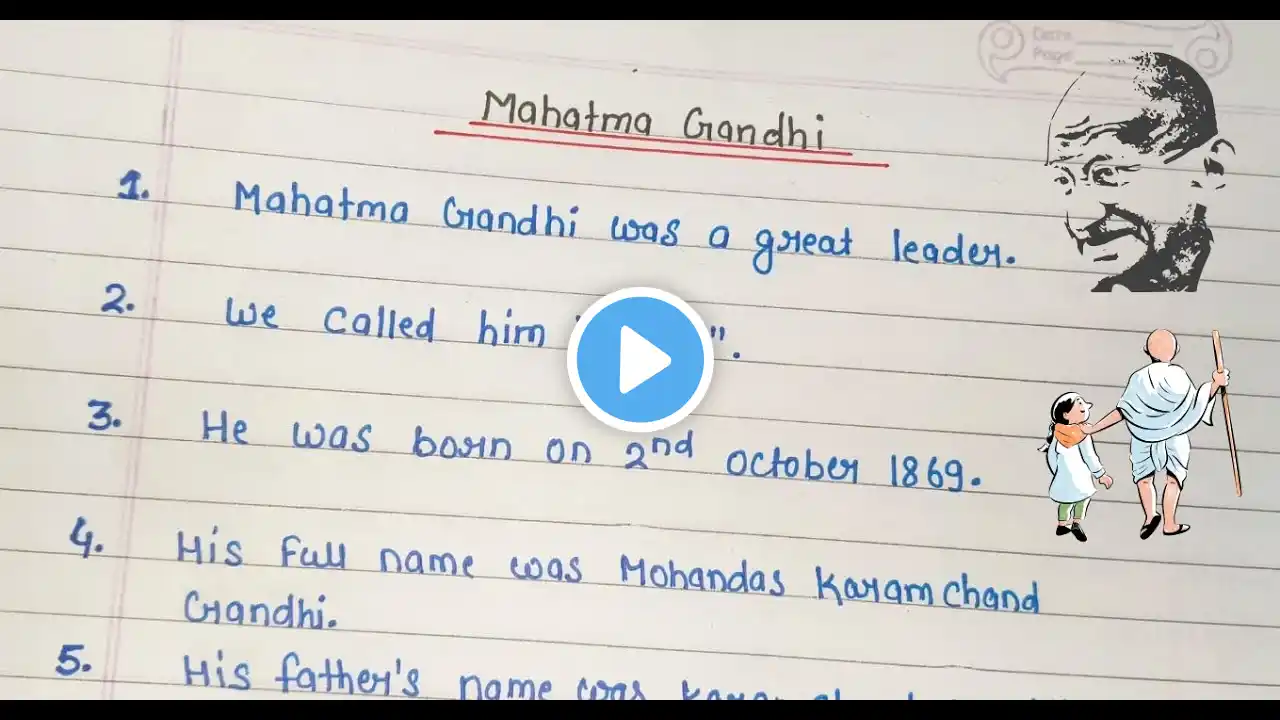 Date
Page
Mahatma Gandhi
1. Mahatma Gandhi was a great leader.
2. We called him " ".
3. He was born on 2nd October 1869.
4. His Full name was Mohandas Karamchand
Gandhi.
5. His father's name was